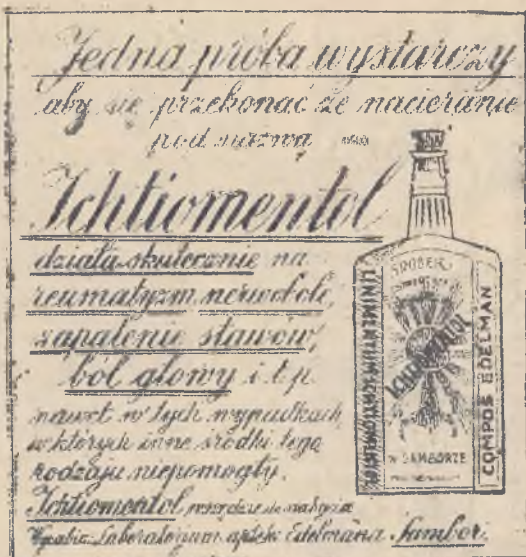 Jedna próba wystarczy
aby się przekonać że nacieranie
pod nazwą
Ichtiomentol
działa skutecznie na
reumatyzm nerwobole,
zapalenie stawów,
ból głowy i t.p.
nawet w tych wypadkach
w których inne środki tego
rodzaju niepomogły.
Ichtiomentol wszędzie do nabycia
Wyrabia Laboratorjum apteki Edelmana Sambor.
ICHTIOMENTOL
W SAMBORZE
COMPOS EDELMAN